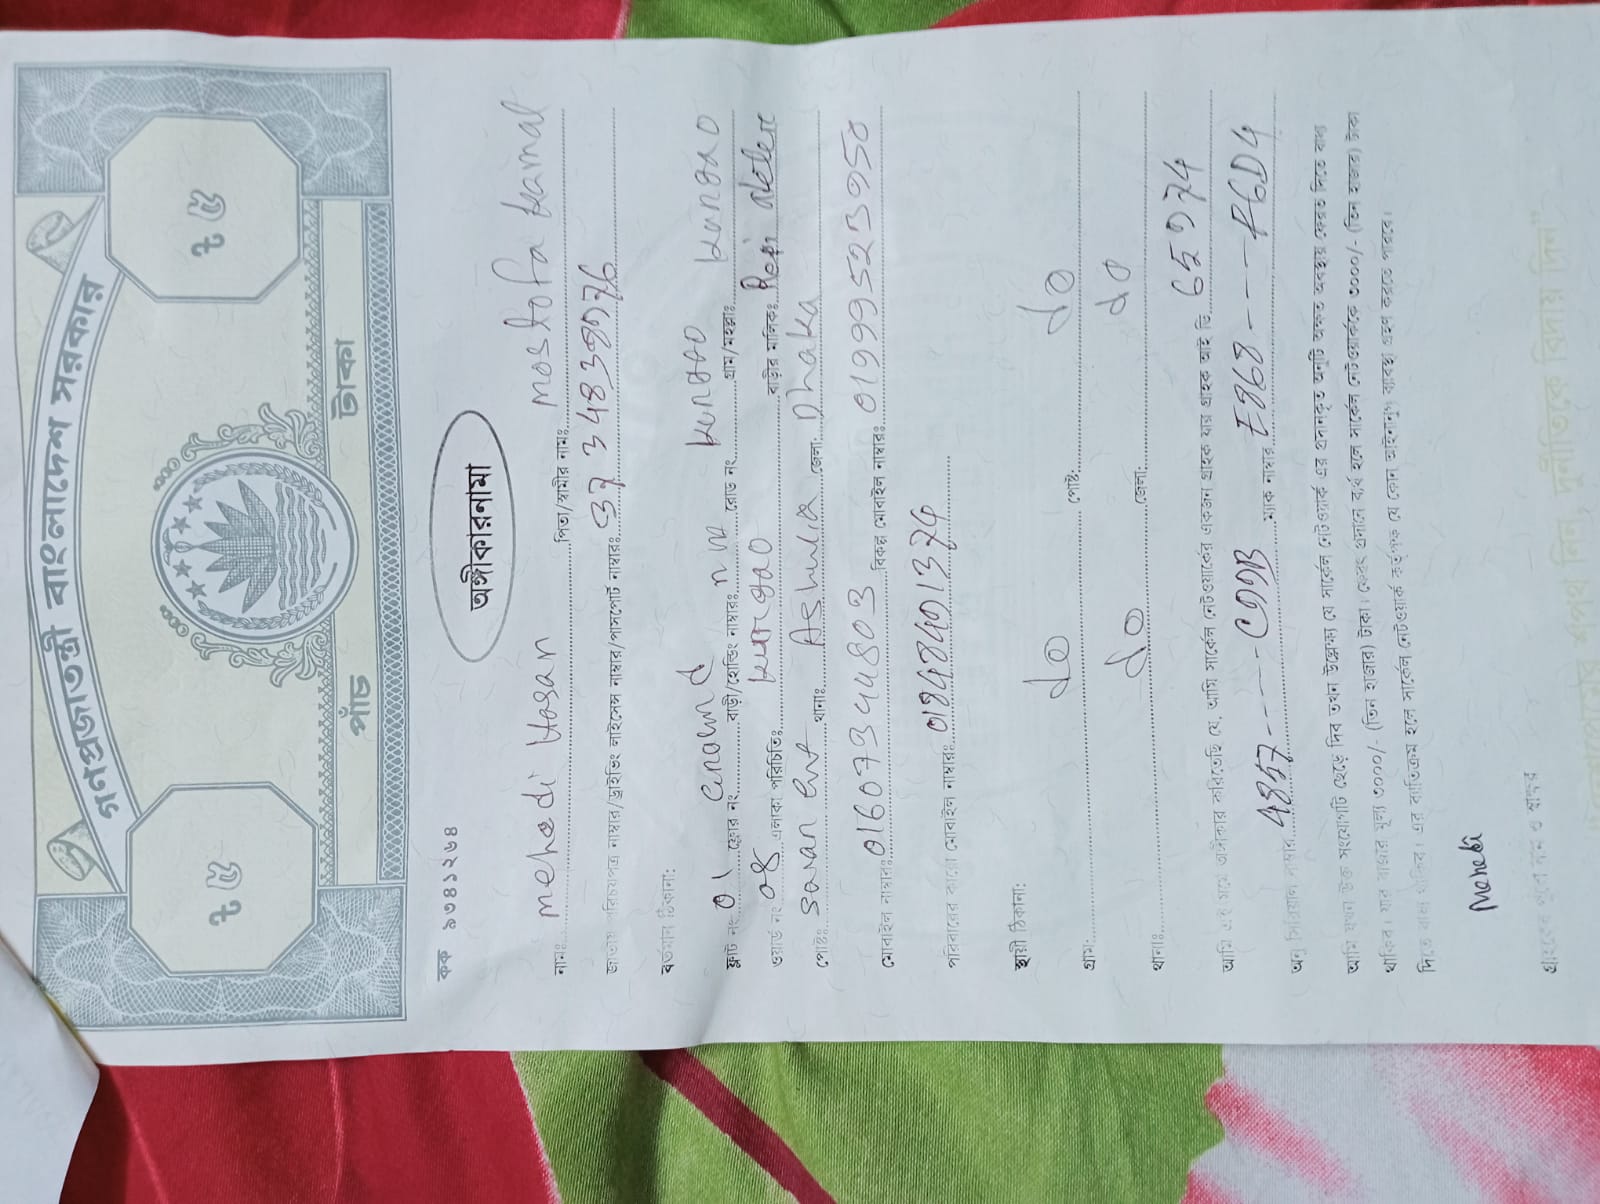 গণপ্রজাতন্ত্রী বাংলাদেশ সরকার
৳ ৫
৳ ৫
পাঁচ টাকা
কক ৯৩৪১২৬৪
অঙ্গীকারনামা
নামঃ mehedi Hasan পিতা/স্বামীর নামঃ mostofa kamal
জাতীয় পরিচয়পত্র নাম্বার/ড্রাইভিং লাইসেন্স নাম্বার/পাসপোর্ট নাম্বারঃ
বর্তমান ঠিকানা:
ফ্ল্যাট নং 01 ফ্লোর নং বাড়ী/হোল্ডিং নাম্বারঃ রোড নং গ্রাম/মহল্লাঃ
ওয়ার্ড নং 08 এলাকা পরিচিতিঃ বাড়ীর মালিকঃ
পোষ্টঃ থানাঃ Ashulia জেলা: Dhaka
মোবাইল নাম্বারঃ 01607344803 বিকল্প মোবাইল নাম্বারঃ
পরিবারের কারো মোবাইল নাম্বারঃ
স্থায়ী ঠিকানা:
গ্রাম: do পোষ্ট: do
থানাঃ do জেলা: do
আমি এই মর্মে অঙ্গীকার করিতেছি যে, আমি সার্কেল নেটওয়ার্কের একজন গ্রাহক যার গ্রাহক আই ডি
অনু সিরিয়াল নাম্বার ম্যাক নাম্বার
আমি যখন উক্ত সংযোগটি ছেড়ে দিব তখন উল্লেখ্য যে সার্কেল নেটওয়ার্ক এর প্রদানকৃত অনুটি অক্ষত অবস্থায় ফেরত দিতে বাধ্য
থাকিব। যার বাজার মূল্য ৩০০০/- (তিন হাজার) টাকা। ফেরৎ প্রদানে ব্যর্থ হলে সার্কেল নেটওয়ার্ককে ৩০০০/- (তিন হাজার) টাকা
দিতে বাধ্য থাকিব। এর ব্যতিক্রম হলে সার্কেল নেটওয়ার্ক কর্তৃপক্ষ যে কোন আইনানুগ ব্যবস্থা গ্রহন করতে পারবে।
Mehedi
গ্রাহকের পূর্ণ নাম ও স্বাক্ষর
শপথ নিন, দুর্নীতিকে বিদায় দিন"